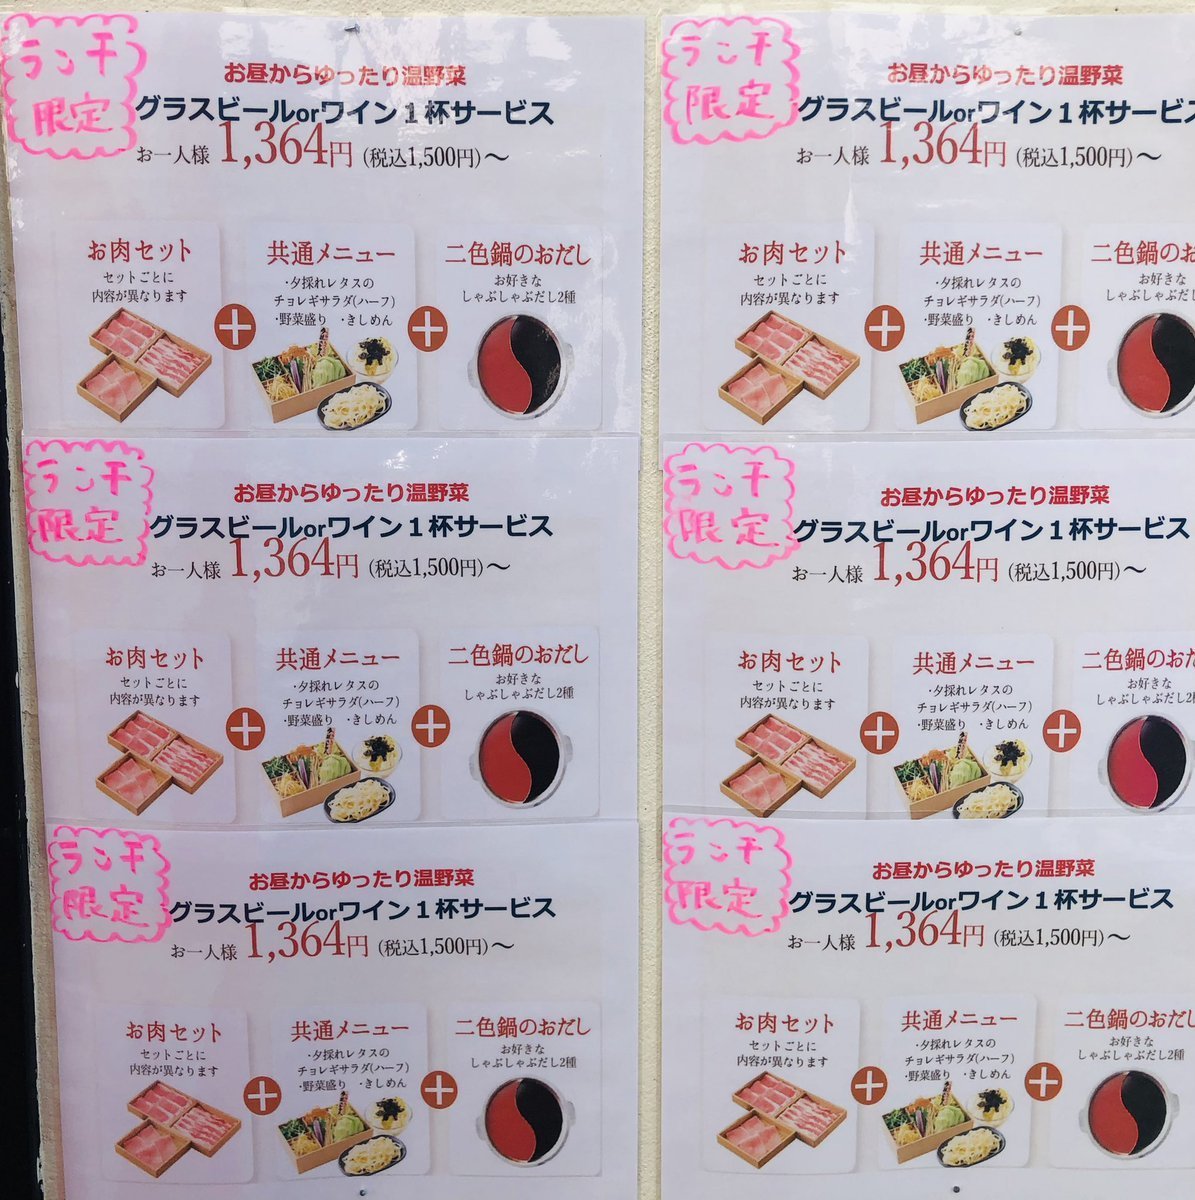 ランチ
限定
お昼からゆったり温野菜
グラスビールorワイン1杯サービス
お一人様 1,364円 (税込1,500円)〜
お肉セット
セットごとに
内容が異なります
共通メニュー
・夕採れレタスの
チョレギサラダ(ハーフ)
・野菜盛り ・きしめん
二色鍋のおだし
お好きな
しゃぶしゃぶだし2種
ランチ
限定
お昼からゆったり温野菜
グラスビールorワイン1杯サービス
お一人様 1,364円 (税込1,500円)〜
お肉セット
セットごとに
内容が異なります
共通メニュー
・夕採れレタスの
チョレギサラダ(ハーフ)
・野菜盛り ・きしめん
二色鍋のお
お好きな
しゃぶしゃぶだし
ランチ
限定
お昼からゆったり温野菜
グラスビールorワイン1杯サービス
お一人様 1,364円 (税込1,500円)〜
お肉セット
セットごとに
内容が異なります
共通メニュー
・夕採れレタスの
チョレギサラダ(ハーフ)
・野菜盛り ・きしめん
二色鍋のおだし
お好きな
しゃぶしゃぶだし2種
ランチ
限定
お昼からゆったり温野菜
グラスビールorワイン1杯サービス
お一人様 1,364円 (税込1,500円)〜
お肉セット
セットごとに
内容が異なります
共通メニュー
・夕採れレタスの
チョレギサラダ(ハーフ)
・野菜盛り ・きしめん
二色鍋のおだ
お好きな
しゃぶしゃぶだし2種
ランチ
限定
お昼からゆったり温野菜
グラスビールorワイン1杯サービス
お一人様 1,364円 (税込1,500円)〜
お肉セット
セットごとに
内容が異なります
共通メニュー
・夕採れレタスの
チョレギサラダ(ハーフ)
・野菜盛り ・きしめん
二色鍋のおだし
お好きな
しゃぶしゃぶだし2種
ランチ
限定
お昼からゆったり温野菜
グラスビールorワイン1杯サービス
お一人様 1,364円 (税込1,500円)〜
お肉セット
セットごとに
内容が異なります
共通メニュー
・夕採れレタスの
チョレギサラダ(ハーフ)
・野菜盛り ・きしめん
二色鍋のおだし
お好きな
しゃぶしゃぶだし2種